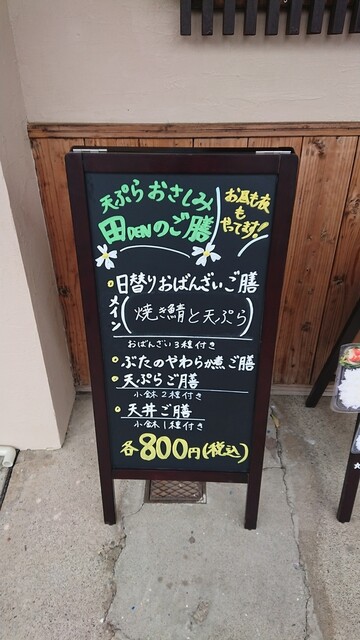 天ぷら おさしみ
田DENのご膳
お昼も夜
も
やってます!
日替りおばんざいご膳
メイン(焼き鯖と天ぷら)
おばんざい3種付き
ぶたのやわらか煮ご膳
天ぷらご膳
小鉢2種付き
天丼ご膳
小鉢1種付き
各800円(税込)